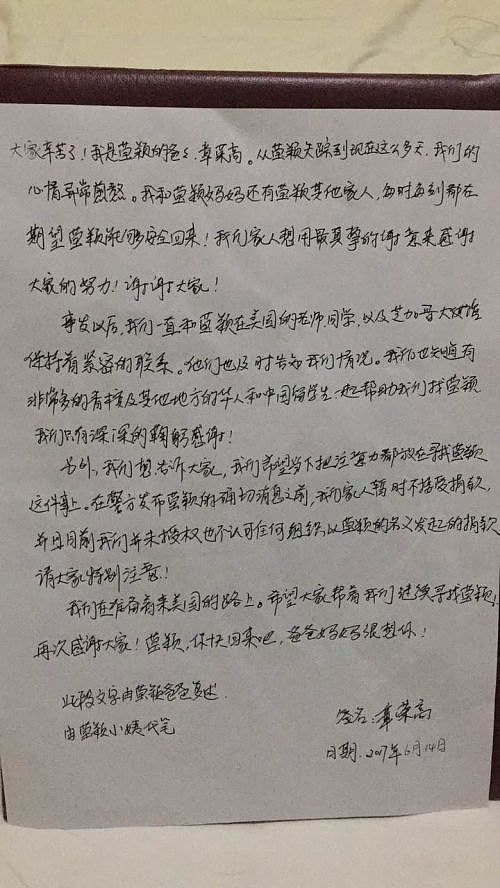 大家辛苦了！我是莹颖的爸爸，章荣高。从莹颖失踪到现在这么多天，我们的
心情异常煎熬。我和莹颖妈妈还有莹颖其他家人，每时每刻都在
期望莹颖能够安全回来！我们家人想用最真挚的谢意来感谢
大家的努力！谢谢大家！
事发以后，我们一直和莹颖在美国的老师，同学，以及芝加哥大使馆
保持着紧密的联系。他们也及时告知我们情况。我们也知道有
非常多的香槟及其他地方的华人和中国留学生一起帮助我们找莹颖
我们只有深深的鞠躬感谢！
另外，我们想告诉大家，我们希望当下把注意力都放在寻找莹颖
这件事上。在警方发布莹颖的确切消息之前，我们家人暂时不接受捐款，
并且目前我们并未授权也不认可任何组织以莹颖的名义发起的捐款
请大家特别注意！
我们在准备着来美国的路上。希望大家帮着我们继续寻找莹颖！
再次感谢大家！莹颖，你快回来吧，爸爸妈妈很想你！
此段文字由莹颖爸爸口述
由莹颖小姨代笔
签名：章荣高
日期：2017年6月14日